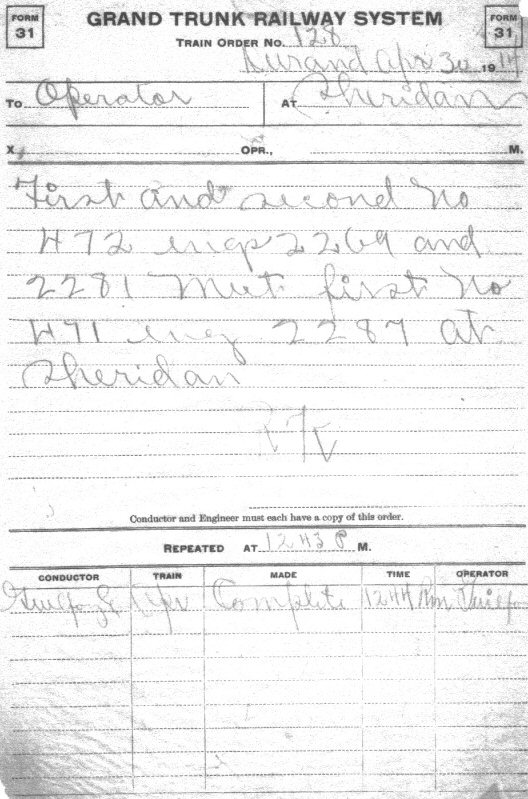 FORM 31
GRAND TRUNK RAILWAY SYSTEM
FORM 31
TRAIN ORDER No. 128
Durand Apr 30 19
To Operator AT Sheridan
X OPR., M.
First and second No
472 engs 2269 and
2281 Meet first No
471 eng 2287 at
Sheridan
Conductor and Engineer must each have a copy of this order.
REPEATED AT 1243 P M.
CONDUCTOR TRAIN MADE TIME OPERATOR
Opr Complete 1244 Pm